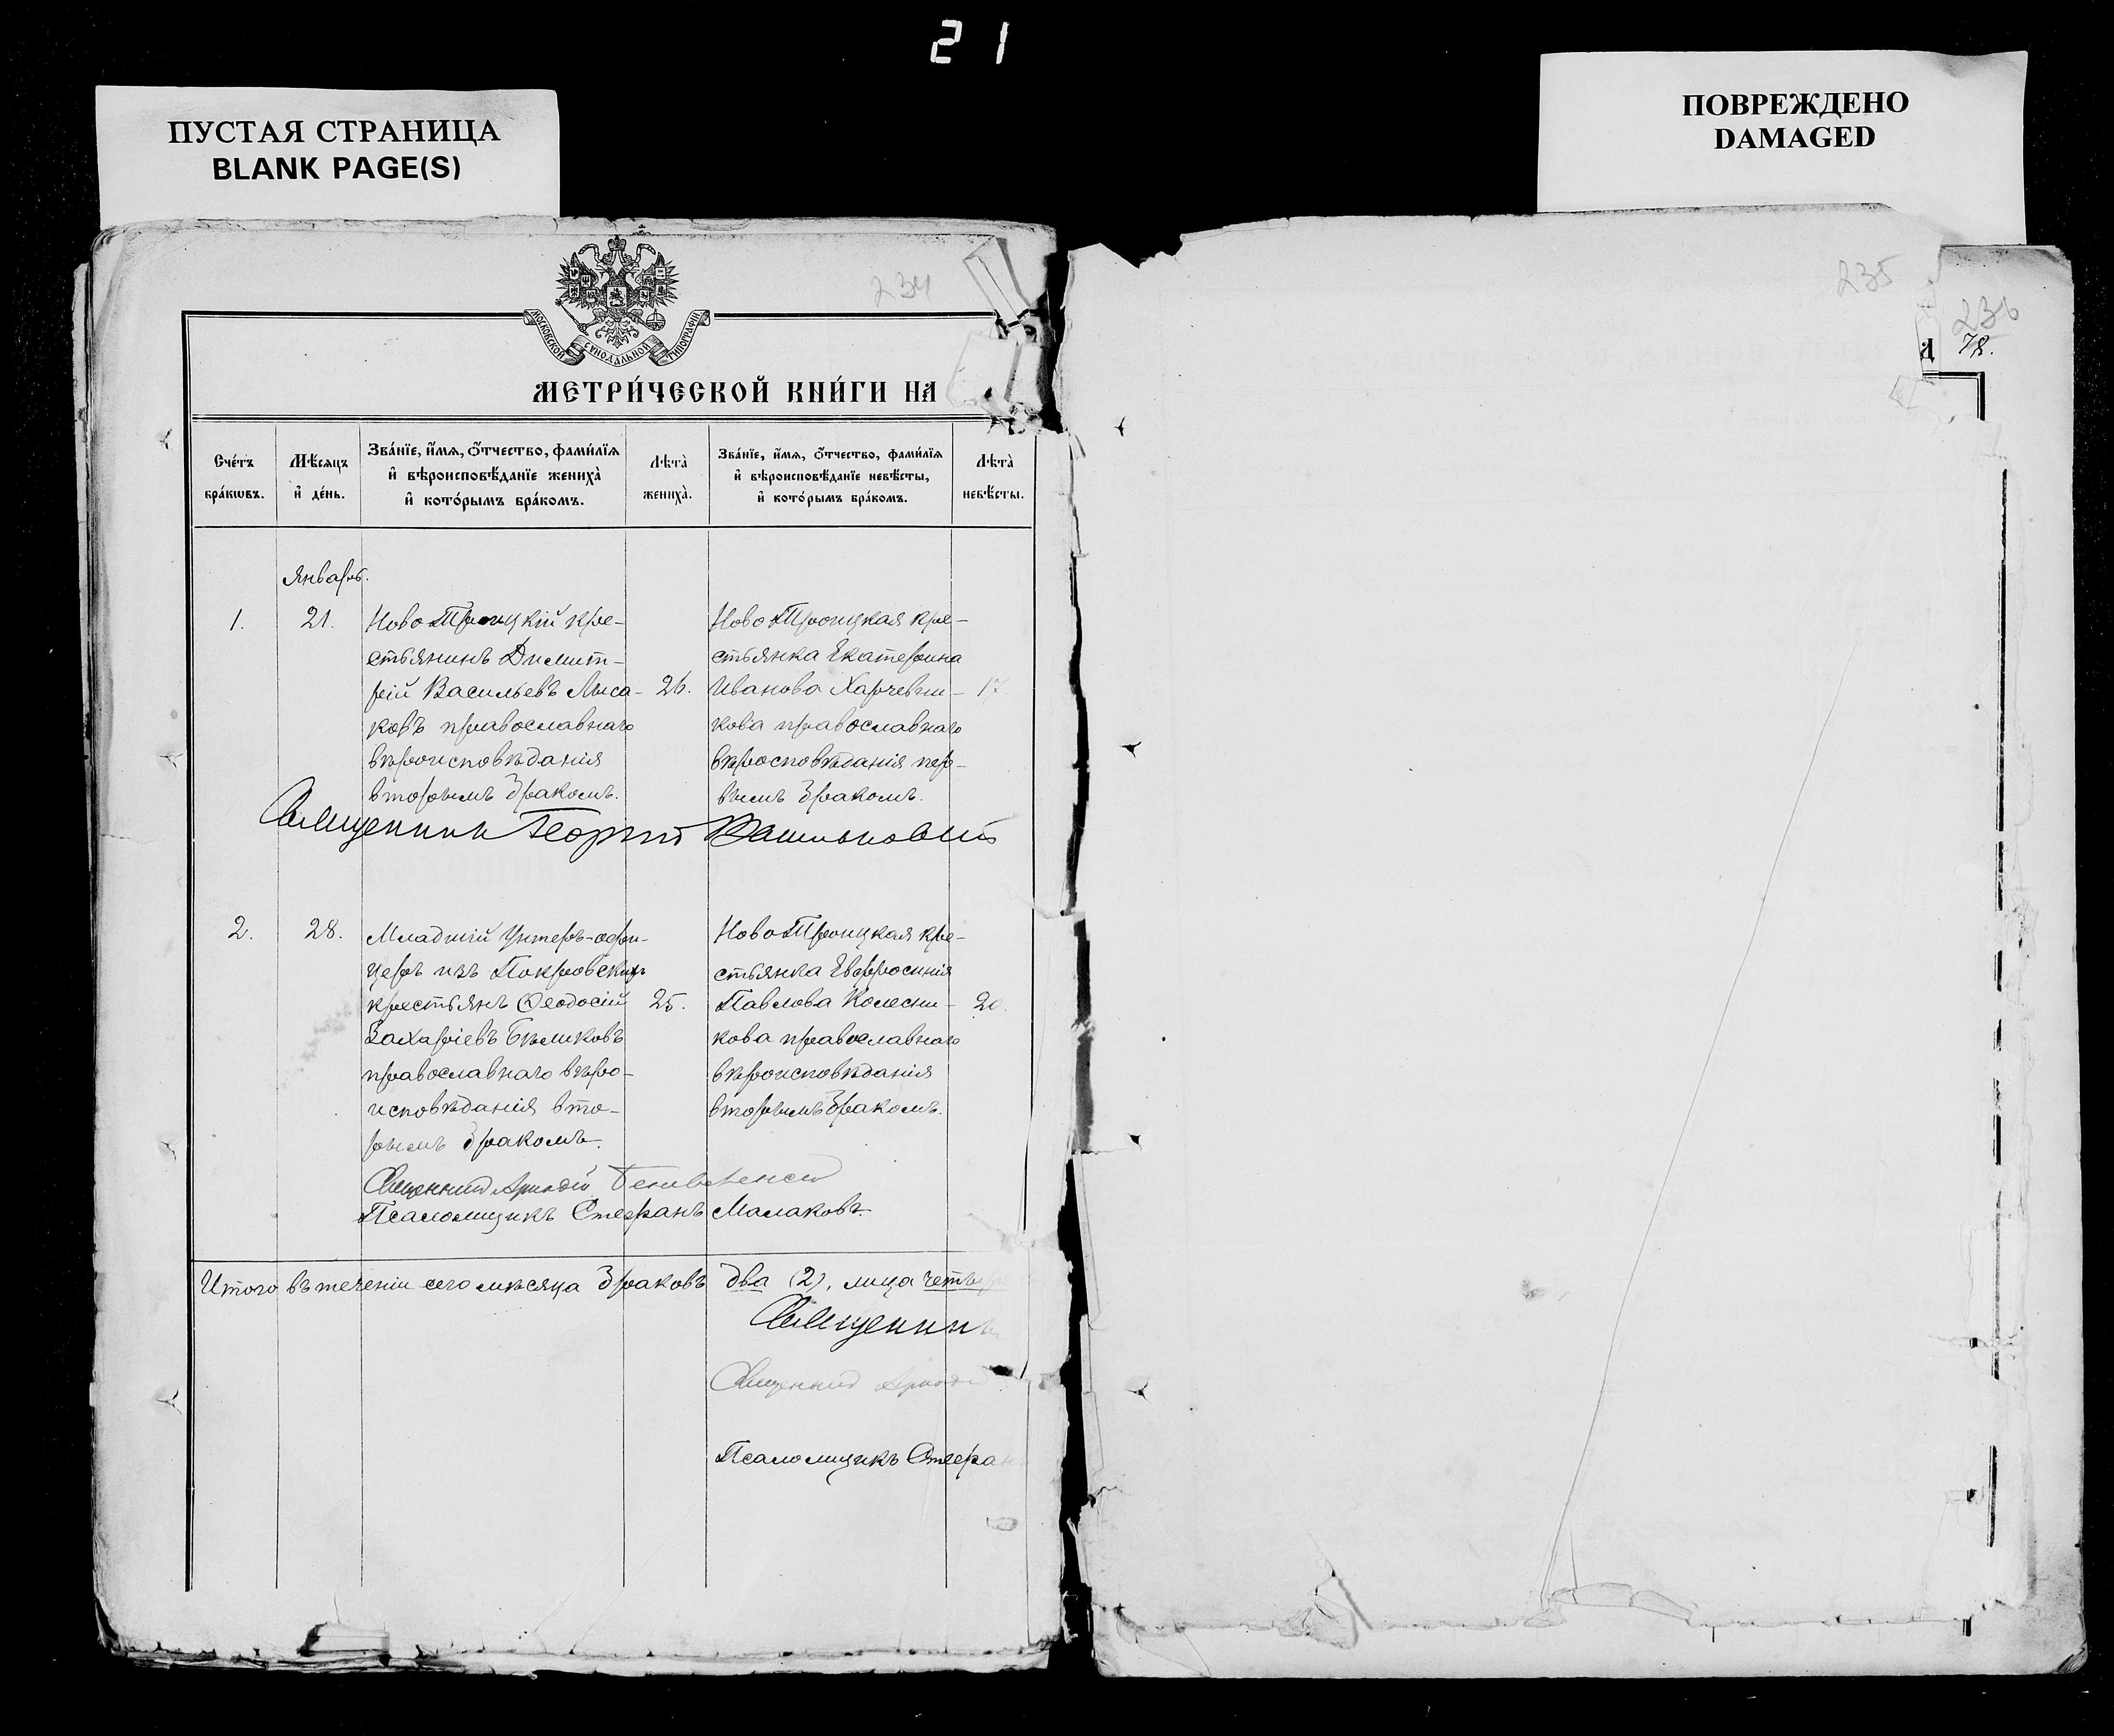 21
ПУСТАЯ СТРАНИЦА
BLANK PAGE(S)
ПОВРЕЖДЕНО
DAMAGED
234
235
236
78.
МОСКОВСКОЙ СѴНОДАЛЬНОЙ ТИПОГРАФІИ
МЕТРИ́ЧЕСКОЙ КНИ́ГИ НА
Сче́тъ бра́кωвъ.
Мѣ́сяцъ и҆ де́нь.
Зва́нїе, и҆́мѧ, ѻ҆́тчество, фами́лїѧ и҆ вѣроисповѣ́данїе жениха̀ и҆ кото́рымъ бра́комъ.
Лѣта̀ жениха̀.
Зва́нїе, и҆́мѧ, ѻ҆́тчество, фами́лїѧ и҆ вѣроисповѣ́данїе невѣ́сты, и҆ кото́рымъ бра́комъ.
Лѣта̀ невѣ́сты.
Январь.
1.
21.
Ново Троицкій кре-
стьянинъ Димит-
рій Васильевъ Лыса-
ковъ православнаго
вѣроисповѣданія
вторымъ бракомъ.
26.
Ново Троицкая кре-
стьянка Екатерина
Иванова Харчевни-
кова православнаго
вѣросповѣданія пер-
вымъ бракомъ.
17
Священникъ Георгій
2.
28.
Младшій Унтеръ-офи-
церъ изъ Покровскихъ
крестьянъ Ѳеодосій
Захаріевъ Бѣликовъ
православнаго вѣро-
исповѣданія вто-
рымъ бракомъ.
25.
Ново Троицкая кре-
стьянка Евфросинія
Павлова Колесни-
кова православнаго
вѣроисповѣданія
вторымъ бракомъ.
20.
Священник Аркадій
Псаломщикъ Стефанъ Малаковъ.
Итого въ теченіи сего мѣсяца браковъ два (2), лица четыре
Священникъ
Священник Аркадій
Псаломщикъ Стефан